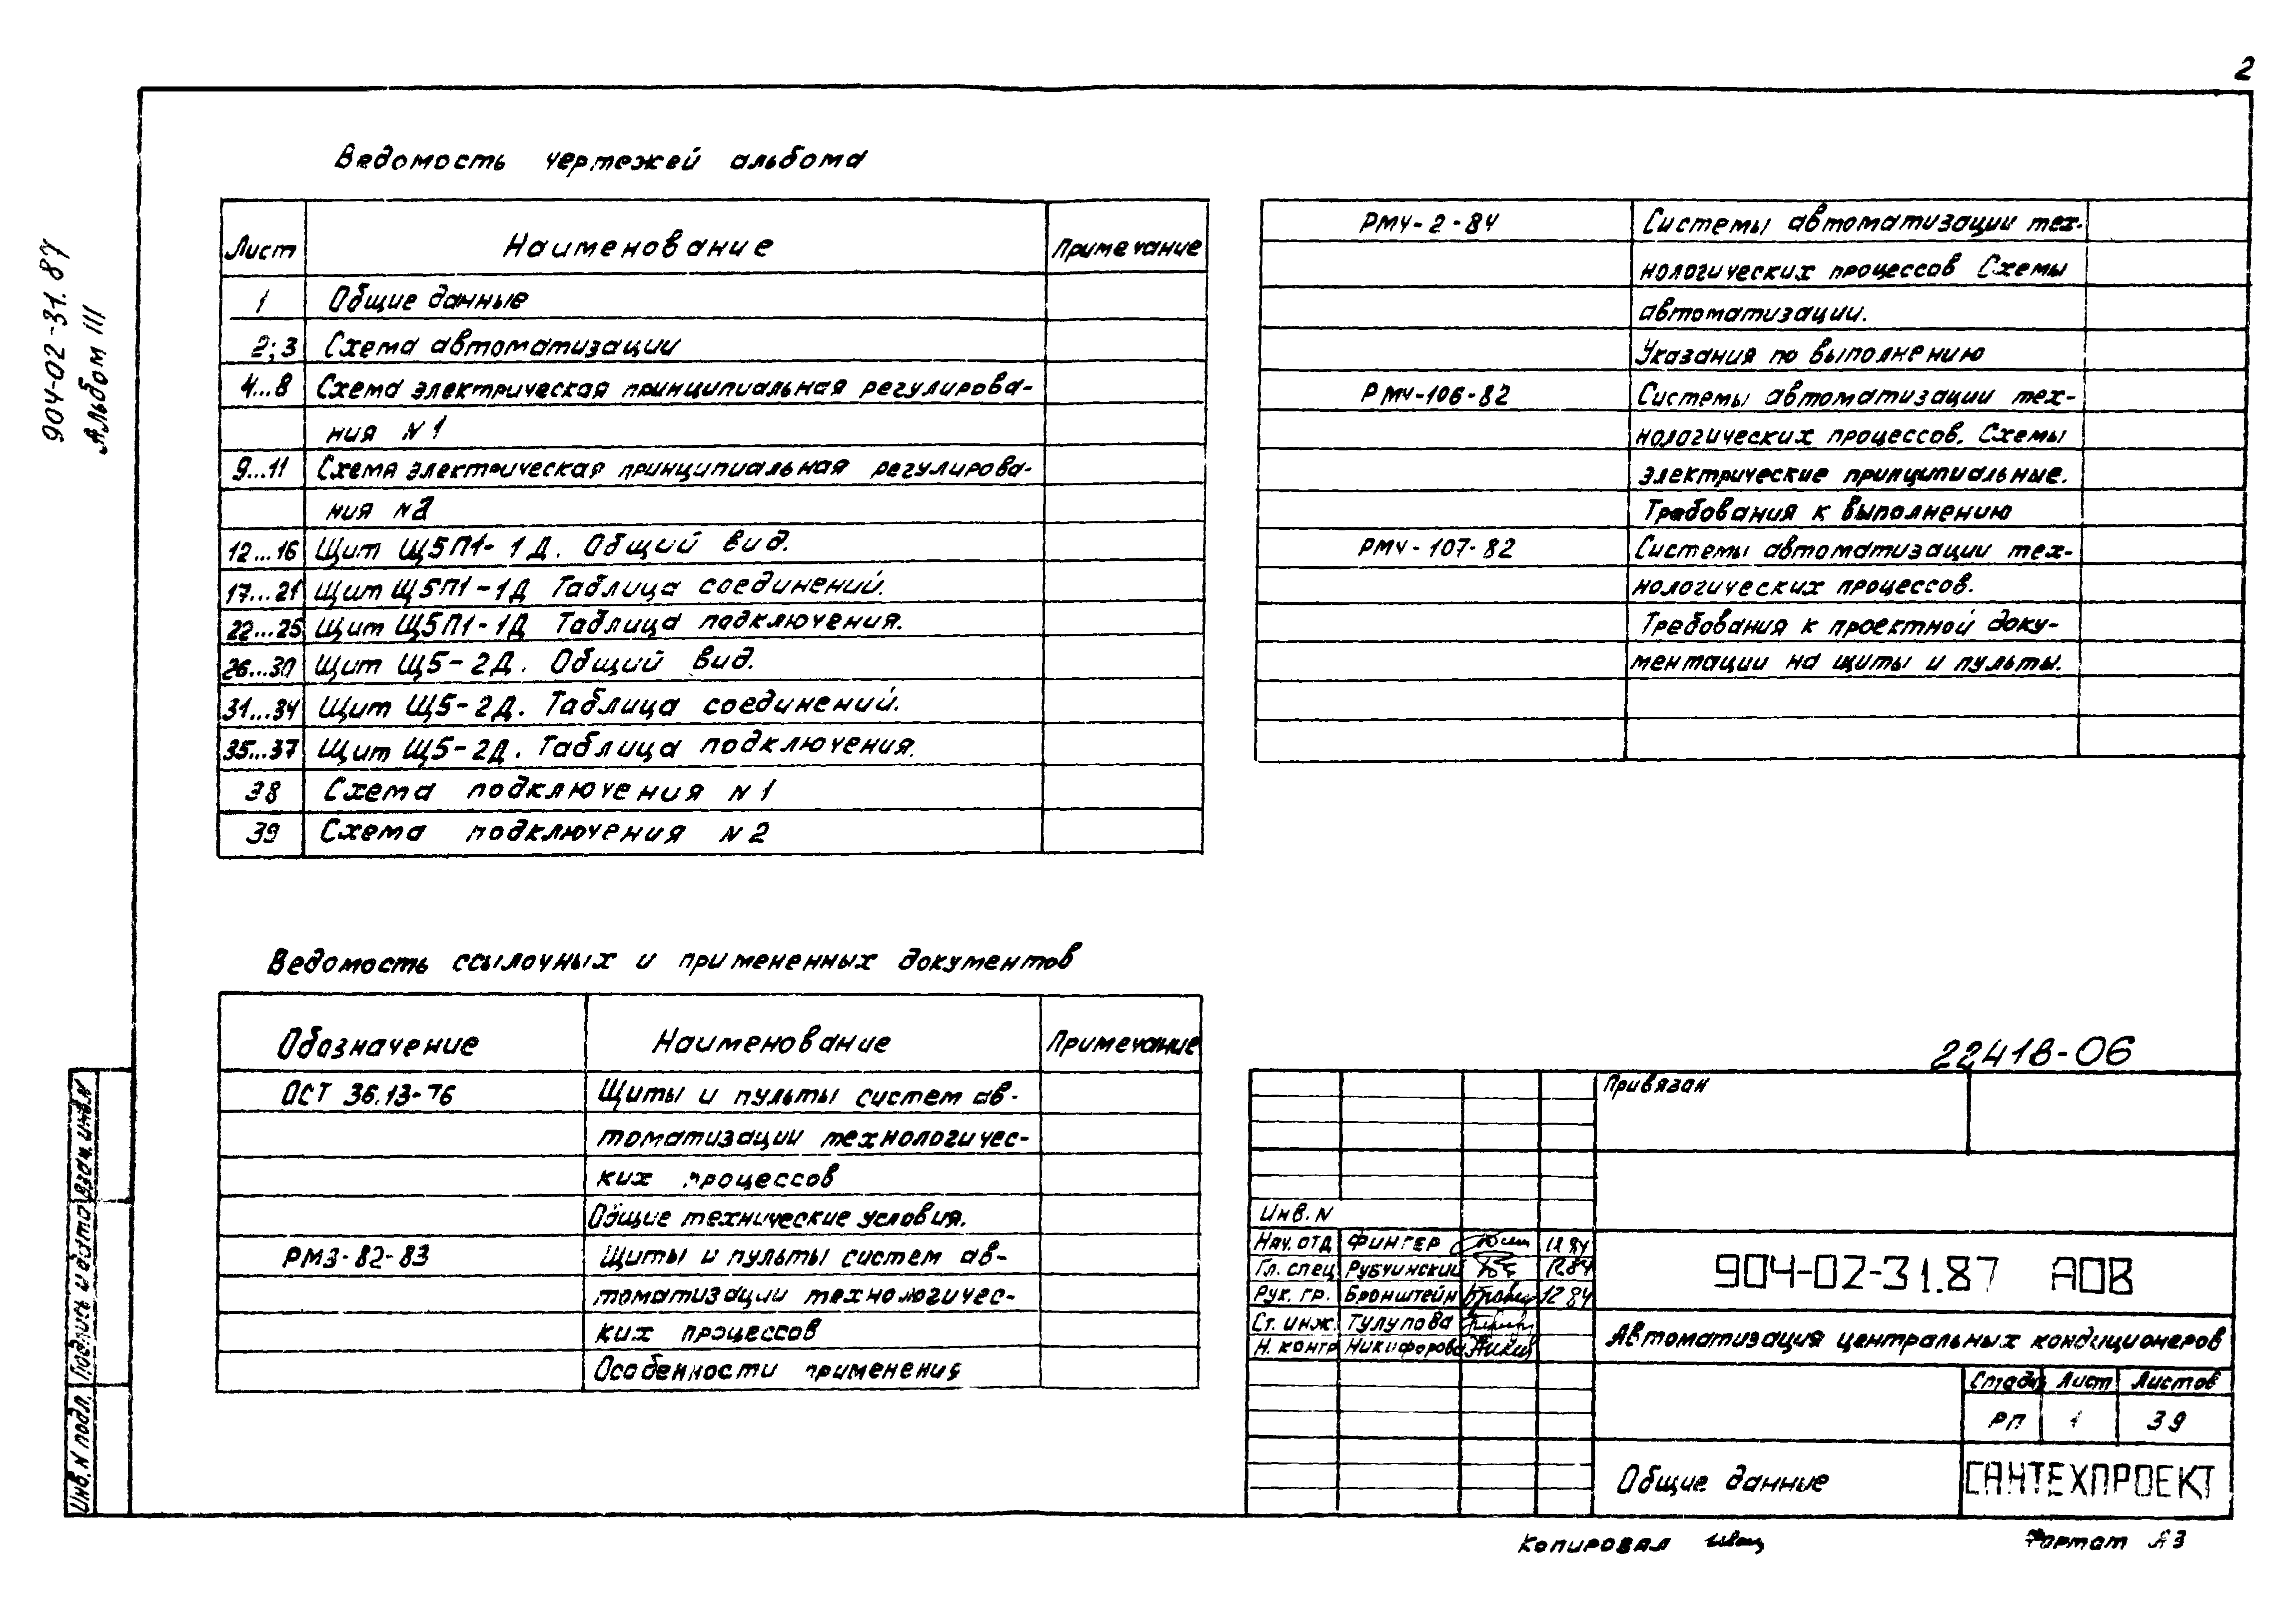 2
904-02-31.87
Альбом III
Ведомость чертежей альбома
Лист Наименование Примечание
1 Общие данные
2; 3 Схема автоматизации
4...8 Схема электрическая принципиальная регулирова-
ния N 1
9...11 Схема электрическая принципиальная регулирова-
ния N2
12...16 Щит Щ5П1-1Д. Общий вид.
17...21 Щит Щ5П1-1Д Таблица соединений.
22...25 Щит Щ5П1-1Д Таблица подключения.
26...30 Щит Щ5-2Д. Общий вид.
31...34 Щит Щ5-2Д. Таблица соединений.
35...37 Щит Щ5-2Д. Таблица подключения.
38 Схема подключения N 1
39 Схема подключения N 2
Ведомость ссылочных и примененных документов
Обозначение Наименование Примечание
ОСТ 36.13-76 Щиты и пульты систем ав-
томатизации технологичес-
ких процессов
Общие технические условия.
РМ3-82-83 Щиты и пульты систем ав-
томатизации технологичес-
ких процессов
Особенности применения
РМ4-2-84 Системы автоматизации тех-
нологических процессов Схемы
автоматизации.
Указания по выполнению
РМ4-106-82 Системы автоматизации тех-
нологических процессов. Схемы
электрические принципиальные.
Требования к выполнению
РМ4-107-82 Системы автоматизации тех-
нологических процессов.
Требования к проектной доку-
ментации на щиты и пульты.
22418-06
Привязан
Инв. N
Нач. отд Фингер 12 84
Гл. спец Рубчинский 12.84
Рук. гр. Бронштейн 12 84
Ст. инж. Тулупова
Н. контр Никифорова
904-02-31.87 АОВ
Автоматизация центральных кондиционеров
Стадия Лист Листов
РП 1 39
Общие данные
САНТЕХПРОЕКТ
Инв. N подл. Подпись и дата Взам. инв. N
Копировал
Формат А3